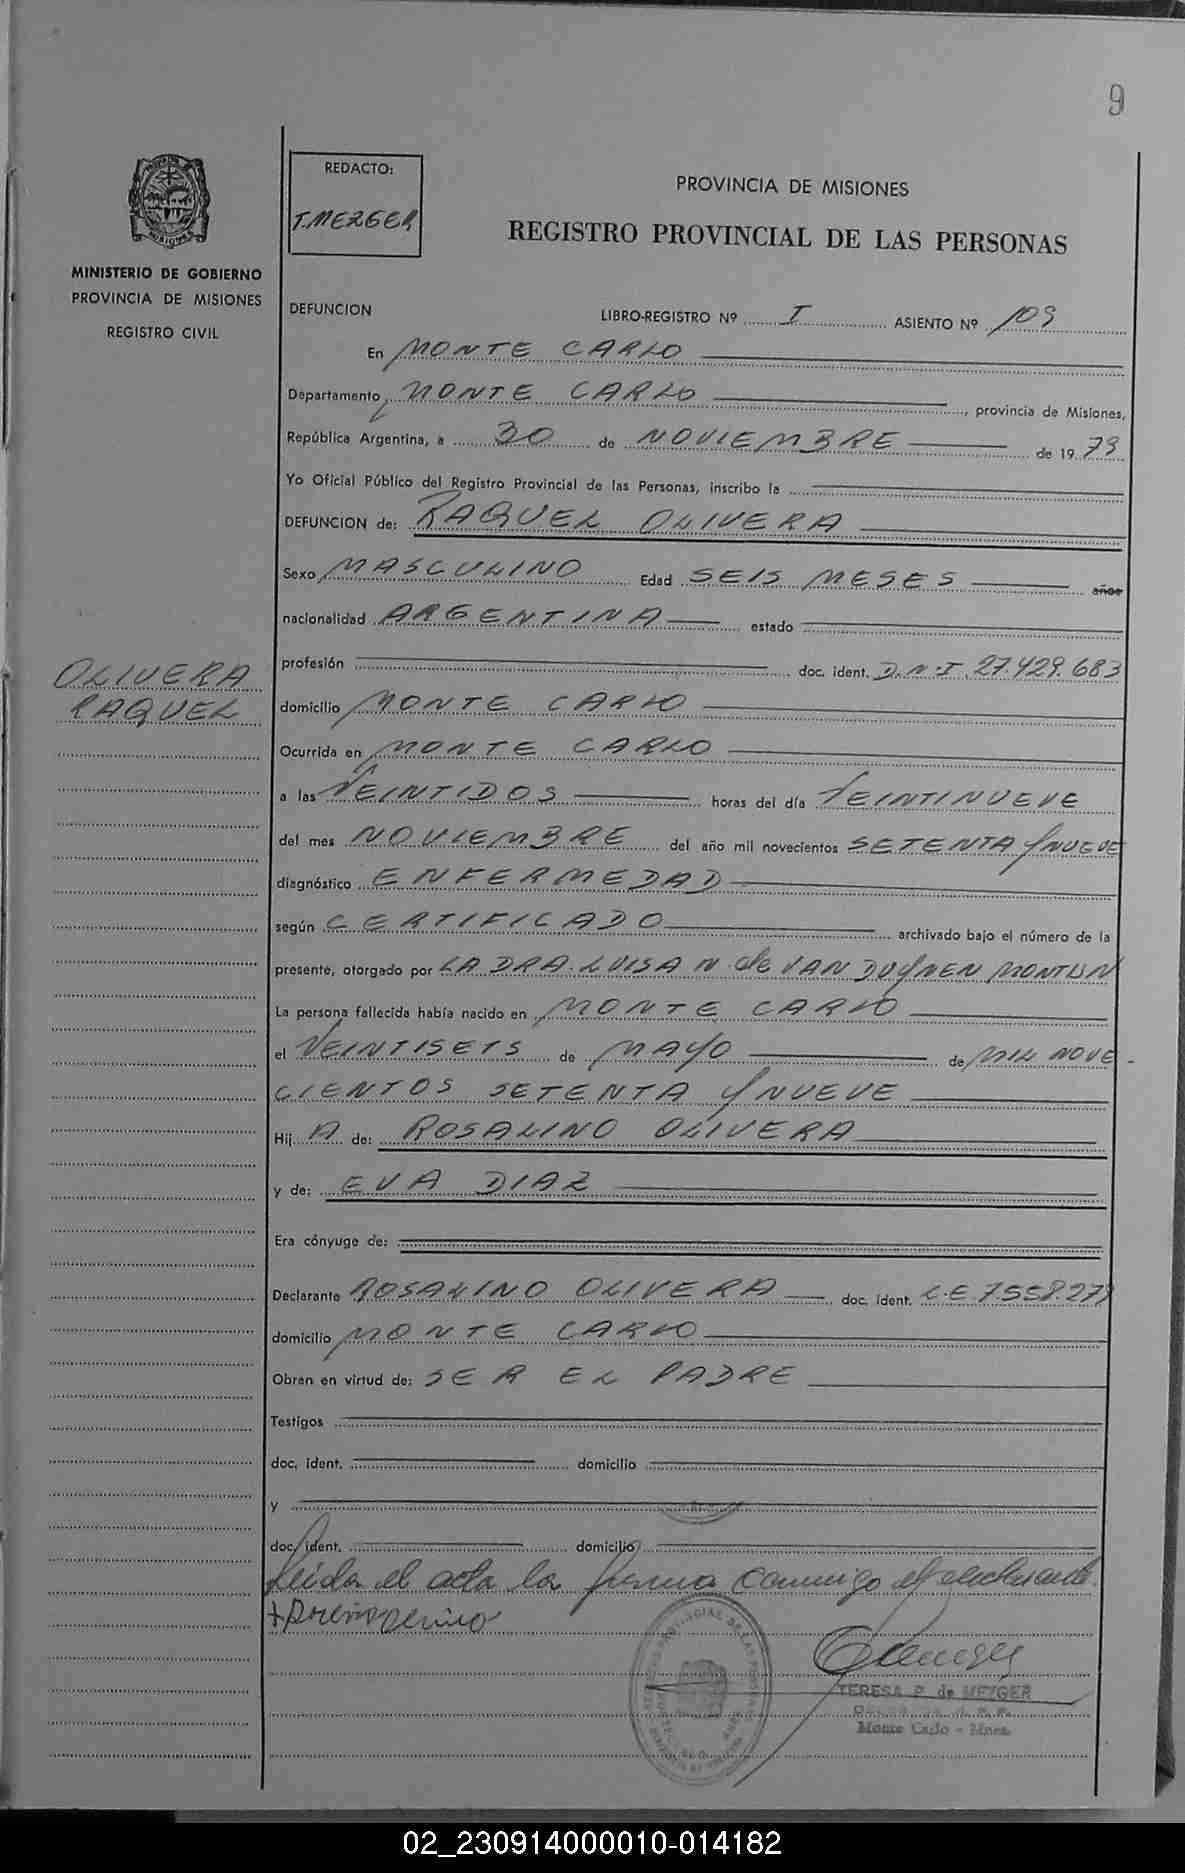 9
REDACTO:
T.MEZGER
PROVINCIA DE MISIONES
REGISTRO PROVINCIAL DE LAS PERSONAS
MINISTERIO DE GOBIERNO
PROVINCIA DE MISIONES
REGISTRO CIVIL
DEFUNCION LIBRO-REGISTRO Nº I ASIENTO Nº 109
En MONTE CARLO
Departamento, MONTE CARLO, provincia de Misiones,
República Argentina, a 30 de NOVIEMBRE de 1979
Yo Oficial Público del Registro Provincial de las Personas, inscribo la
DEFUNCION de: RAQUEL OLIVERA
Sexo MASCULINO Edad SEIS MESES años
nacionalidad ARGENTINA estado
OLIVERA
RAQUEL
profesión doc. ident. D.N.I. 27.429.683
domicilio MONTE CARLO
Ocurrida en MONTE CARLO
a las VEINTIDOS horas del día VEINTINUEVE
del mes NOVIEMBRE del año mil novecientos SETENTA Y NUEVE
diagnóstico ENFERMEDAD
según CERTIFICADO archivado bajo el número de la
presente, otorgado por LA DRA. LUISA N. de VAN DUYNEN MONTIJN
La persona fallecida había nacido en MONTE CARLO
el VEINTISEIS de MAYO de MIL NOVE-
CIENTOS SETENTA Y NUEVE
Hij A de: ROSALINO OLIVERA
y de: EVA DIAZ
Era cónyuge de:
Declarante ROSALINO OLIVERA doc. ident. L.E 7.558.27
domicilio MONTE CARLO
Obran en virtud de: SER EL PADRE
Testigos
doc. ident. domicilio
y
doc. ident. domicilio
Leida el acta la firma conmigo el declarante.
TERESA P. de MEZGER
Monte Carlo - Mnes.
02_230914000010-014182